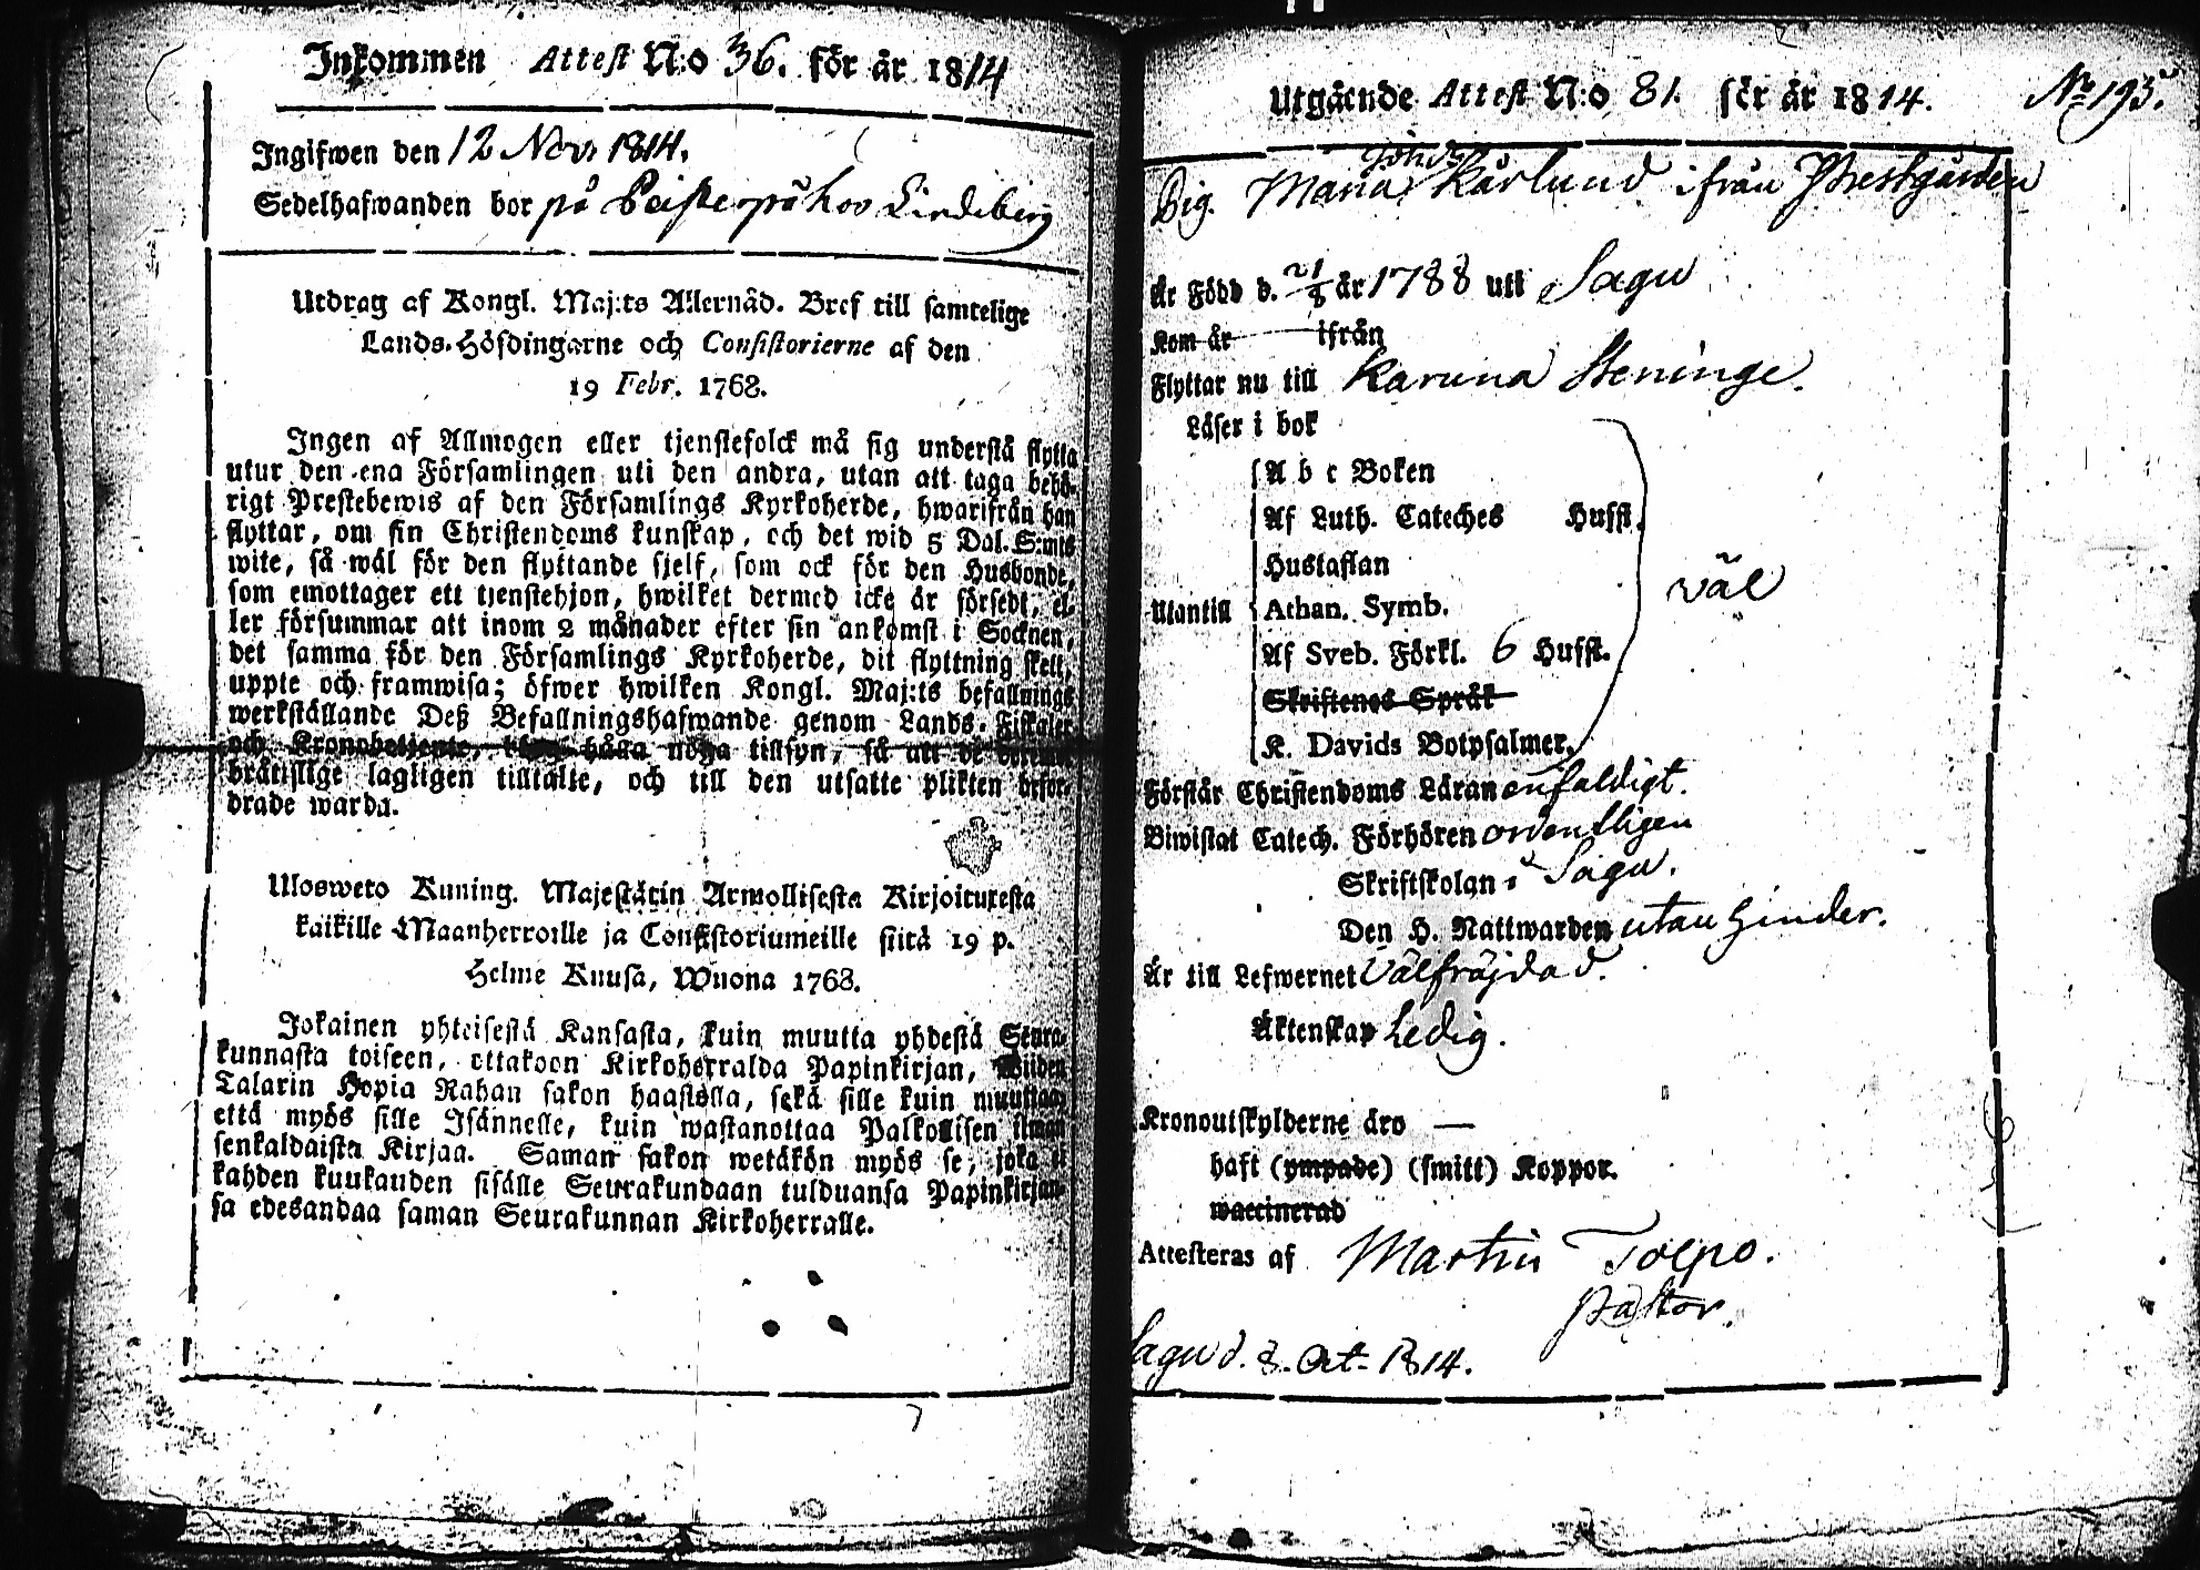 Inkommen Attest N:o 36. för år 1814
Ingifwen den 12 Nov. 1814.
Sedelhafwanden bor på Peisterpä hos Lindeberg
Utdrag af Kongl. Maj:ts Allernåd. Bref till samtelige
Lands-Höfdingarne och Consistorierne af den
19 Febr. 1768.
Ingen af Allmogen eller tjenstefolck må sig understå flytta
utur den ena Församlingen uti den andra, utan att taga behö-
rigt Prestebewis af den Församlings Kyrkoherde, hwarifrån han
flyttar, om sin Christendoms kunskap, och det wid 5 Dal. S:mts
wite, så wäl för den flyttande sjelf, som ock för den Husbonde,
som emottager ett tjenstehjon, hwilket dermed icke är försedt, el-
ler försummar att inom 2 månader efter sin ankomst i Socknen,
det samma för den Församlings Kyrkoherde, dit flyttning skett,
uppte och framwisa; öfwer hwilken Kongl. Maj:ts befallnings
werkställande Deß Befallningshafwande genom Lands-Fiskaler
och Kronobetjente, hålla nöga tillsyn, så att de deremot
bråtslige lagligen tilltalte, och till den utsatte plikten befor-
drade warda.
Ulosweto Kuning. Majestätin Armollisesta Kirjoituxesta
kaikille Maanherroille ja Consistoriumeille siitä 19 p.
Helme Kuusa, Wuona 1768.
Jokainen yhteisestä Kansasta, kuin muutta yhdestä Seura-
kunnasta toiseen, ottakoon Kirkoherralda Papinkirjan, Wiiden
Talarin Hopia Rahan sakon haastolla, sekä sille kuin muuttaa,
että myös sille Isännelle, kuin wastanottaa Palkollisen ilman
senkaldaista Kirjaa. Saman sakon wetäkön myös se, joka ei
kahden kuukauden sisälle Seurakundaan tulduansa Papinkirjan-
sa edesandaa saman Seurakunnan Kirkoherralle.
Utgående Attest N:o 81. för år 1814. No 195.
Pig. Maria Kårlund ifrån Prestgården
Är Född d. 21/8 år 1788 uti Sagu
Kom år ifrån
Flyttar nu till Karuna Steninge.
Läser i bok
A b c Boken
Af Luth. Cateches Hufst.
Hustaflan
Utantill Athan. Symb.
väl
Af Sveb. Förkl. 6 Hufst.
Skriftenes Språk
K. Davids Botpsalmer.
Förstår Christendoms Läran enfaldigt.
Biwistat Catech. Förhören ordentligen
Skriftskolan i Sagu.
Den H. Nattwarden utan hinder.
Är till Lefwernet Välfräjdad.
Äktenskap Ledig.
Kronoutskylderne äro —
haft (ympade) (smitt) Koppor.
waccinerad
Attesteras af Martin Tolpo.
Pastor.
Sagu d. 8. Oct. 1814.